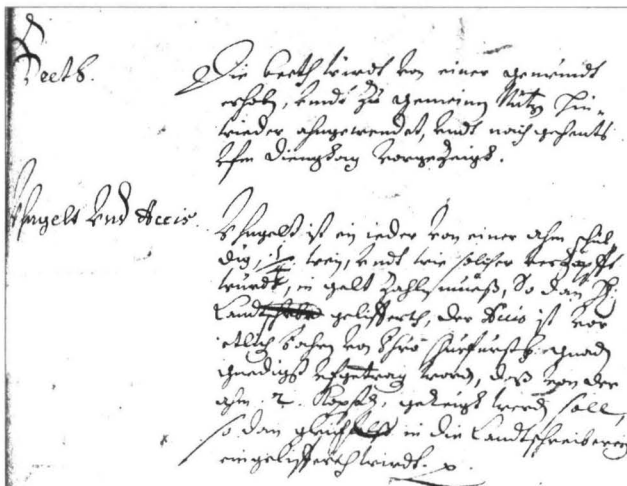 Beeth.
Die beeth wirdt von einer gemeindt
erhoben, undt zu gemeinem Nutzen hin-
wieder ahngewendet, undt nach gehents
vfm Dingtag vorgezeigt.
Vhngelt vnd Accis
Vhngelt ist ein jeder von einer ahm schul-
dig, wein, undt wie solcher verzapfft
würdt, in gelt zahlen mueß, So dan
Landt gelifferth, der Accis ist vor
etlich Jahren von Ihro Churfürstl. gnaden
gnedigst vfgetragen worden, daß von der
ahm. 2. Kopfst. gereicht werden soll,
so dan gleich in die Landtschreiberey
eingelifferth wirdt.